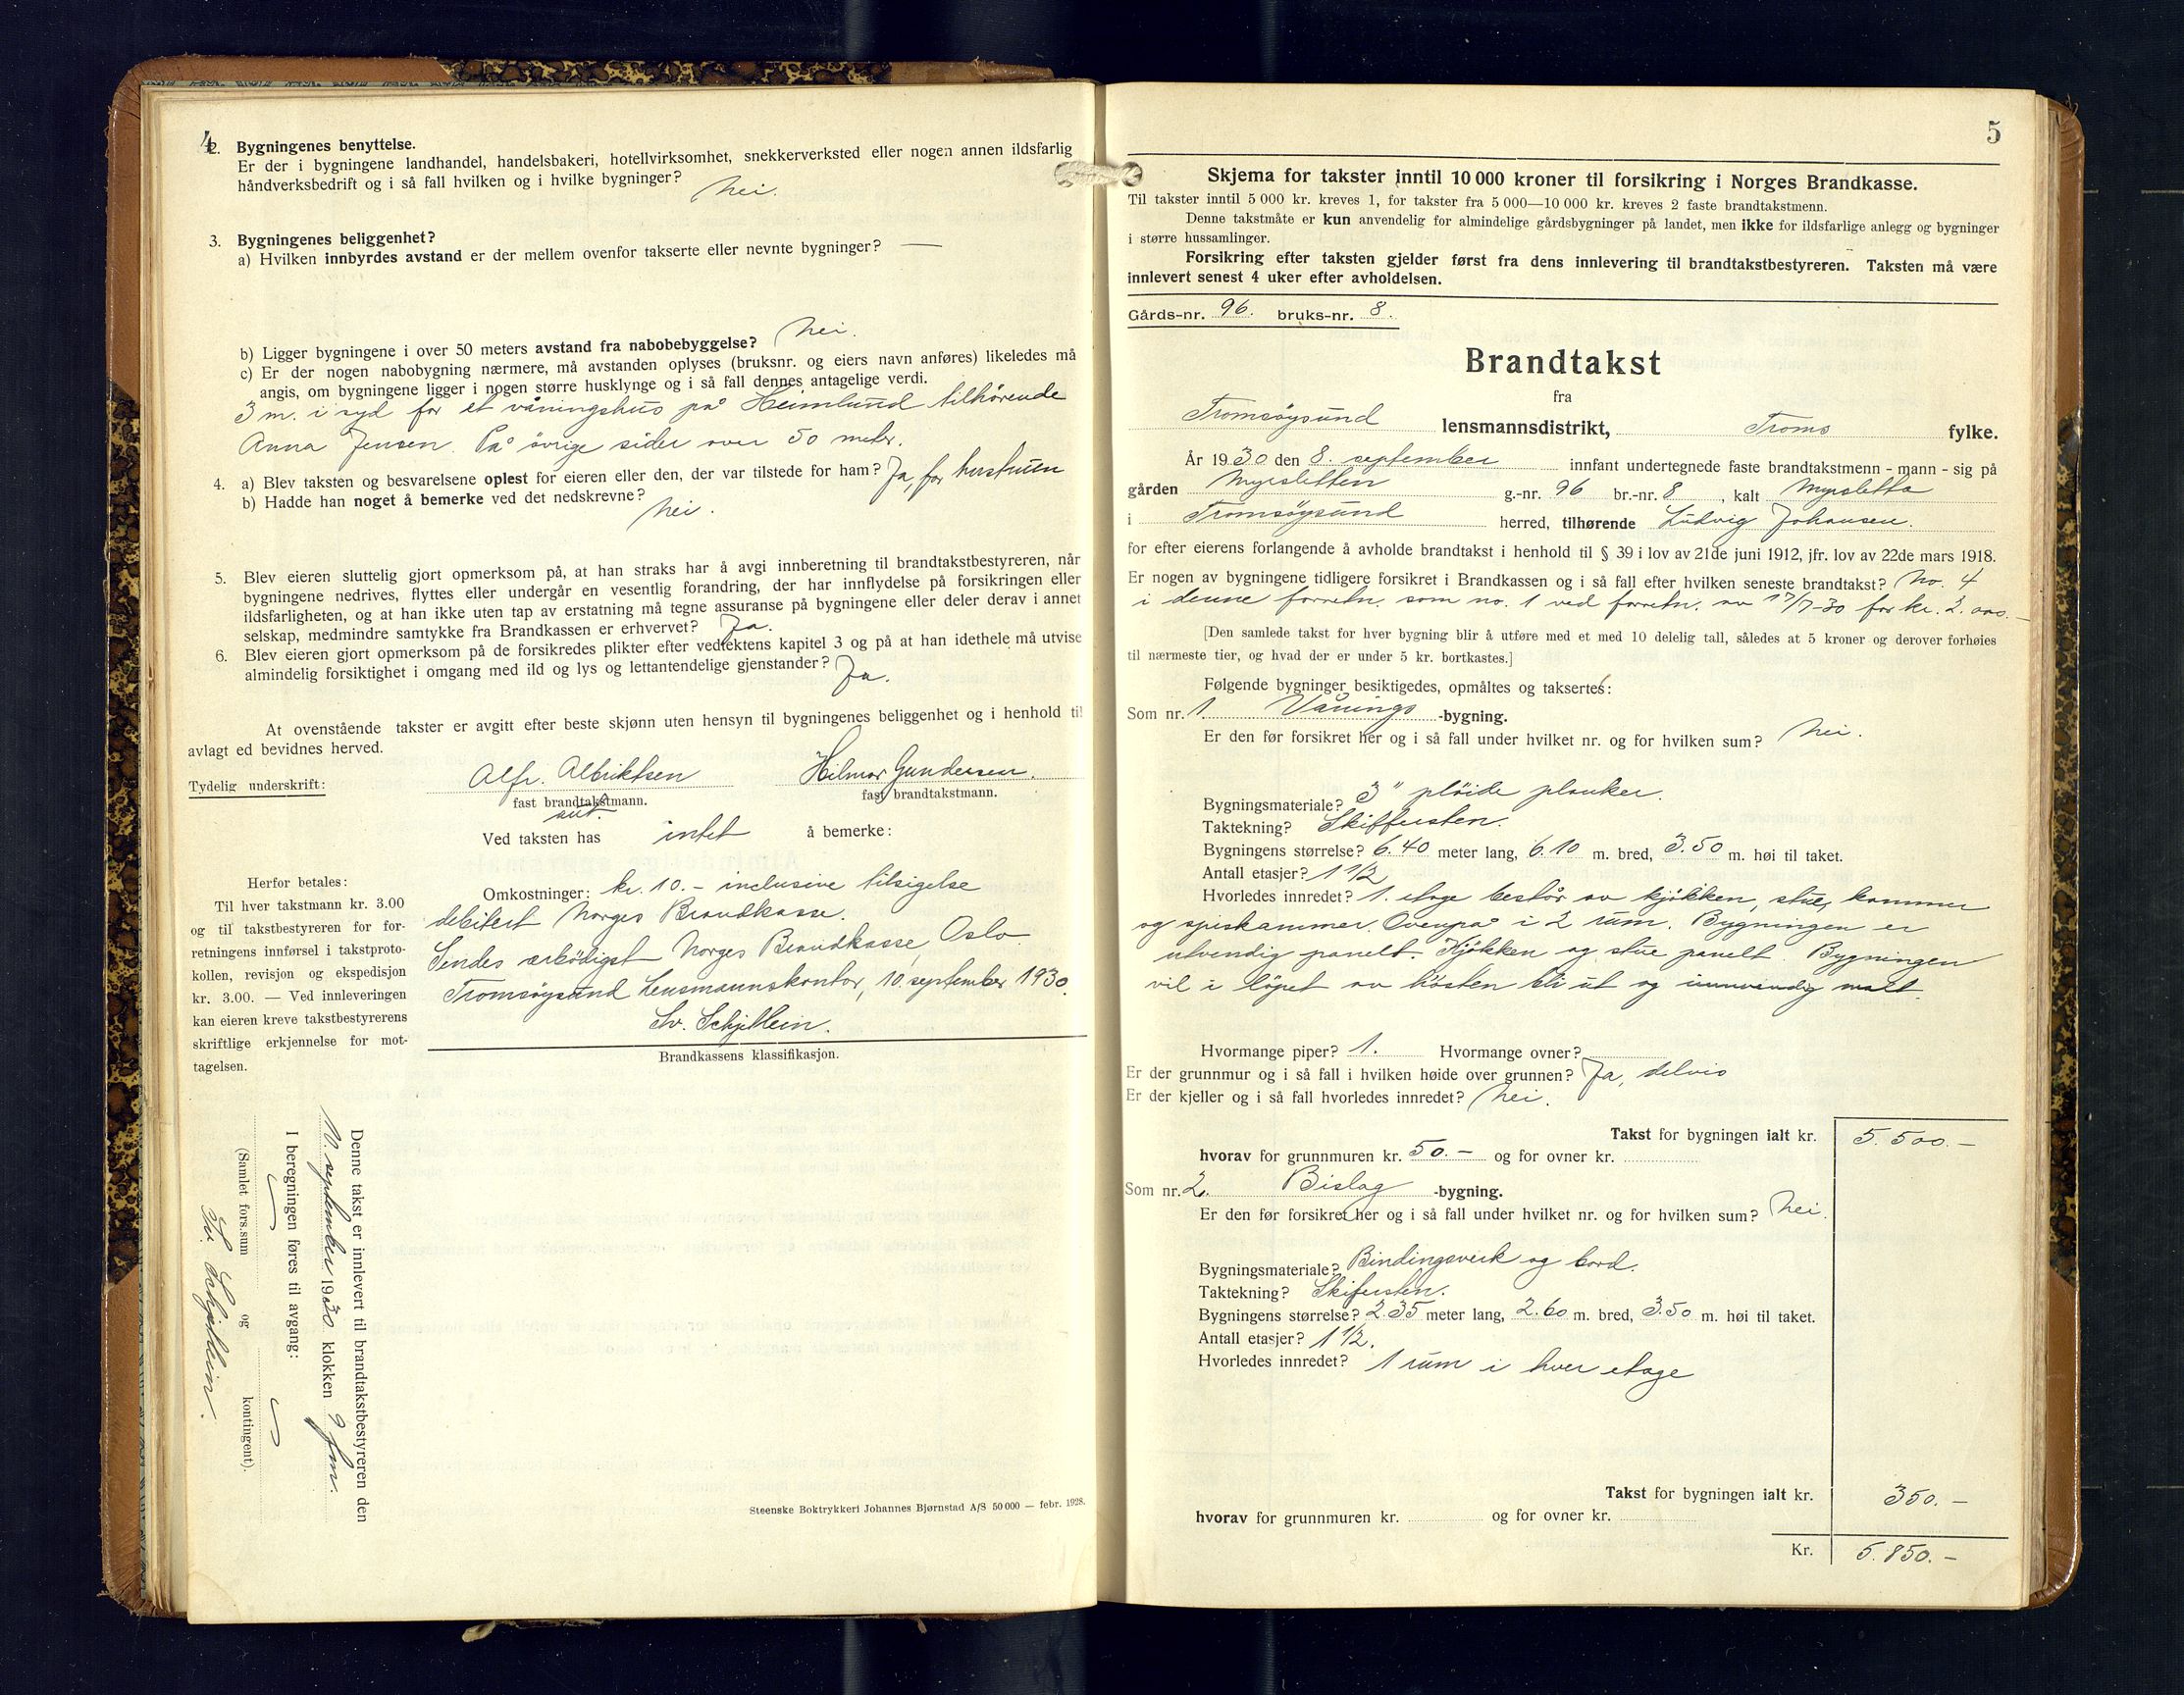 4
2. Bygningenes benyttelse.
Er der i bygningene landhandel, handelsbakeri, hotellvirksomhet, snekkerverksted eller nogen annen ildsfarlig
håndverksbedrift og i så fall hvilken og i hvilke bygninger? Nei.
3. Bygningenes beliggenhet?
a) Hvilken innbyrdes avstand er der mellem ovenfor takserte eller nevnte bygninger? —
b) Ligger bygningene i over 50 meters avstand fra nabobebyggelse? Nei.
c) Er der nogen nabobygning nærmere, må avstanden oplyses (bruksnr. og eiers navn anføres) likeledes må
angis, om bygningene ligger i nogen større husklynge og i så fall dennes antagelige verdi.
3 m. i syd for et våningshus på Heimlund tilhørende
Anna Jensen. På øvrige sider over 50 meter.
4. a) Blev taksten og besvarelsene oplest for eieren eller den, der var tilstede for ham? Ja, for hustruen
b) Hadde han noget å bemerke ved det nedskrevne? Nei.
5. Blev eieren sluttelig gjort opmerksom på, at han straks har å avgi innberetning til brandtakstbestyreren, når
bygningene nedrives, flyttes eller undergår en vesentlig forandring, der har innflydelse på forsikringen eller
ildsfarligheten, og at han ikke uten tap av erstatning må tegne assuranse på bygningene eller deler derav i annet
selskap, medmindre samtykke fra Brandkassen er erhvervet? Ja.
6. Blev eieren gjort opmerksom på de forsikredes plikter efter vedtektens kapitel 3 og på at han idethele må utvise
almindelig forsiktighet i omgang med ild og lys og lettantendelige gjenstander? Ja.
At ovenstående takster er avgitt efter beste skjønn uten hensyn til bygningenes beliggenhet og i henhold til
avlagt ed bevidnes herved.
Tydelig underskrift: Alfr. Albriktsen Hilmar Gundersen.
fast brandtakstmann. fast brandtakstmann.
Ved taksten has intet å bemerke:
Herfor betales:
Til hver takstmann kr. 3.00
og til takstbestyreren for for-
retningens innførsel i takstproto-
kollen, revisjon og ekspedisjon
kr. 3.00. — Ved innleveringen
kan eieren kreve takstbestyrerens
skriftlige erkjennelse for mot-
tagelsen.
Omkostninger: kr. 10.- inclusive tilsigelse
debitert Norges Brandkasse.
Sendes ærbødigst Norges Brandkasse, Oslo.
Tromsøysund Lensmannskontor, 10. september 1930.
Sv. Schjetlein.
Brandkassens klassifikasjon.
Denne takst er innlevert til brandtakstbestyreren den
10. september 1930. klokken 9 fm.
I beregningen føres til avgang:
(Samlet fors.sum og kontingent).
Sv. Schjetlein.
Steenske Boktrykkeri Johannes Bjørnstad A/S 50 000 — febr. 1928.
5
Skjema for takster inntil 10 000 kroner til forsikring i Norges Brandkasse.
Til takster inntil 5 000 kr. kreves 1, for takster fra 5 000—10 000 kr. kreves 2 faste brandtakstmenn.
Denne takstmåte er kun anvendelig for almindelige gårdsbygninger på landet, men ikke for ildsfarlige anlegg og bygninger
i større hussamlinger.
Forsikring efter taksten gjelder først fra dens innlevering til brandtakstbestyreren. Taksten må være
innlevert senest 4 uker efter avholdelsen.
Gårds-nr. 96. bruks-nr. 8.
Brandtakst
fra
Tromsøysund lensmannsdistrikt, Troms fylke.
År 1930 den 8. september innfant undertegnede faste brandtakstmenn - mann - sig på
gården Myrsletten g.-nr. 96 br.-nr. 8, kalt Myrsletta
i Tromsøysund herred, tilhørende Ludvig Johansen.
for efter eierens forlangende å avholde brandtakst i henhold til § 39 i lov av 21de juni 1912, jfr. lov av 22de mars 1918.
Er nogen av bygningene tidligere forsikret i Brandkassen og i så fall efter hvilken seneste brandtakst? No. 4
i denne forretn. som no. 1 ved forretn. av 17/7-30 for kr. 2.000.-
[Den samlede takst for hver bygning blir å utføre med et med 10 delelig tall, således at 5 kroner og derover forhøies
til nærmeste tier, og hvad der er under 5 kr. bortkastes.]
Følgende bygninger besiktigedes, opmåltes og taksertes:
Som nr. 1. Vånings-bygning.
Er den før forsikret her og i så fall under hvilket nr. og for hvilken sum? Nei.
Bygningsmateriale? 3" pløide planker.
Taktekning? Skiffersten.
Bygningens størrelse? 6.40 meter lang, 6.10 m. bred, 3.50 m. høi til taket.
Antall etasjer? 1 1/2
Hvorledes innredet? 1. etage består av kjøkken, stue, kammer
og spiskammer. Ovenpå i 2 rum. Bygningen er
utvendig panelt. Kjøkken og stue panelt. Bygningen
vil i løpet av høsten bli ut og innvendig malt.
Hvormange piper? 1. Hvormange ovner?
Er der grunnmur og i så fall i hvilken høide over grunnen? Ja, delvis
Er der kjeller og i så fall hvorledes innredet? Nei.
Takst for bygningen ialt kr. 5.500.-
hvorav for grunnmuren kr. 50.- og for ovner kr.
Som nr. 2. Bislag-bygning.
Er den før forsikret her og i så fall under hvilket nr. og for hvilken sum? Nei.
Bygningsmateriale? Bindingsverk og bord.
Taktekning? Skifersten.
Bygningens størrelse? 2.35 meter lang, 2.60 m. bred, 3.50 m. høi til taket.
Antall etasjer? 1 1/2.
Hvorledes innredet? 1 rum i hver etage
Takst for bygningen ialt kr. 350.-
hvorav for grunnmuren kr. og for ovner kr.
Kr. 5.850.-